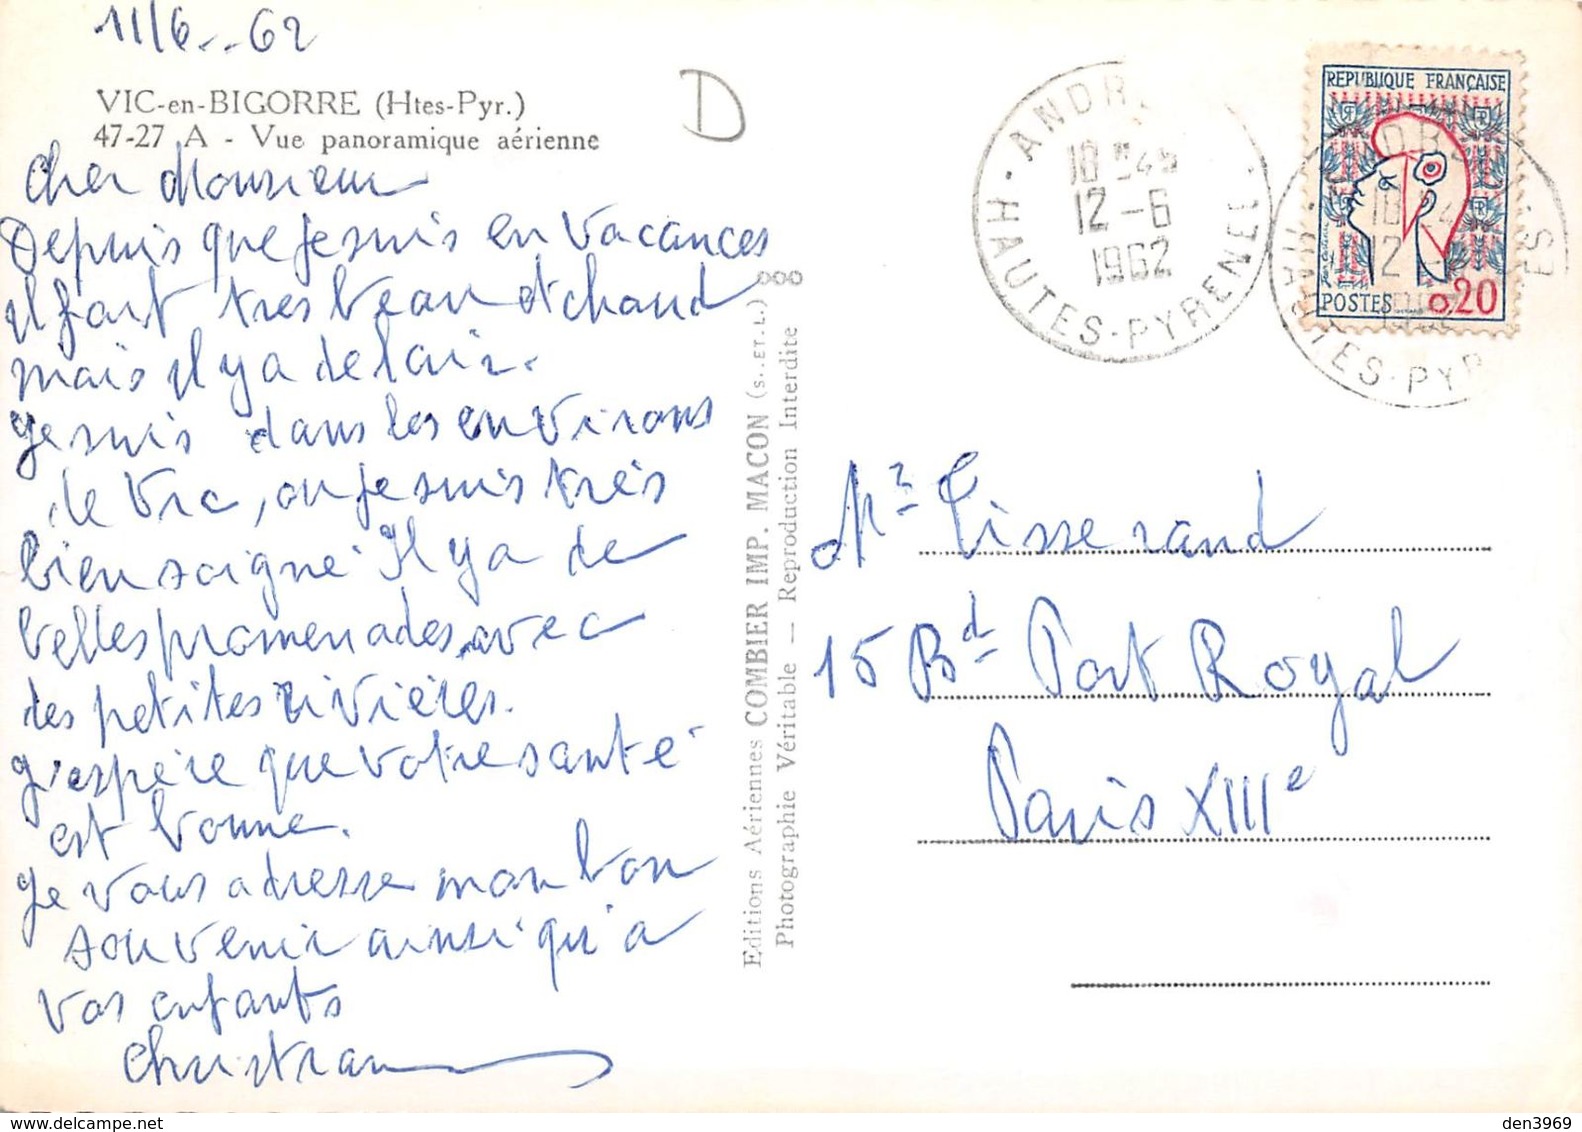 11/6..62
VIC-en-BIGORRE (Htes-Pyr.)
47-27 A - Vue panoramique aérienne
D
Cher Monsieur
Depuis que je suis en vacances
il fait très beau et chaud
mais il y a de l'air.
Je suis dans les environs
de Vic, où je suis très
bien soigné. Il y a de
belles promenades avec
des petites rivières.
J'espère que votre santé
est bonne.
Je vous adresse mon bon
souvenir ainsi qu'à
vos enfants
Christian
Editions Aériennes COMBIER IMP. MACON (S.ET.L.)
Photographie Véritable — Reproduction Interdite
ANDR
12-6
1962
HAUTES-PYRENEE
REPUBLIQUE FRANÇAISE
POSTES 0,20
Mr Tisserand
15 Bd Port Royal
Paris XIIIe
den3969